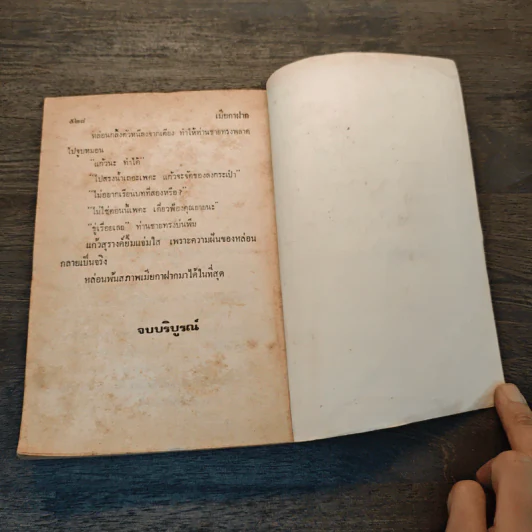 ๕๒๘ เมียกาฝาก
หล่อนกลิ้งตัวหนีลงจากเตียง ทำให้ท่านชายทรงพลาด
ไปจูบหมอน
"แก้วนะ ทำได้"
"ไปสรงน้ำเถอะเพคะ แก้วจะจัดของลงกระเป๋า"
"ไม่อยากเรียนบทที่สองหรือ?"
"ไม่ใช่ตอนนี้เพคะ เดี๋ยวพี่องคุณอายนะ"
"ขู่เรื่อยเลย" ท่านชายทรงบ่นพึม
แก้วสุรางค์ยิ้มแจ่มใส เพราะความฝันของหล่อน
กลายเป็นจริง
หล่อนพ้นสภาพเมียกาฝากมาได้ในที่สุด
จบบริบูรณ์